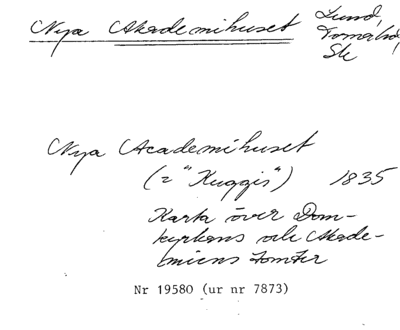 Nya Akademihuset Lund,
Torna hd,
Sk
Nya Academihuset
(= "Kuggis") 1835
Karta över Dom-
kyrkans och Akade-
miens tomter
Nr 19580 (ur nr 7873)